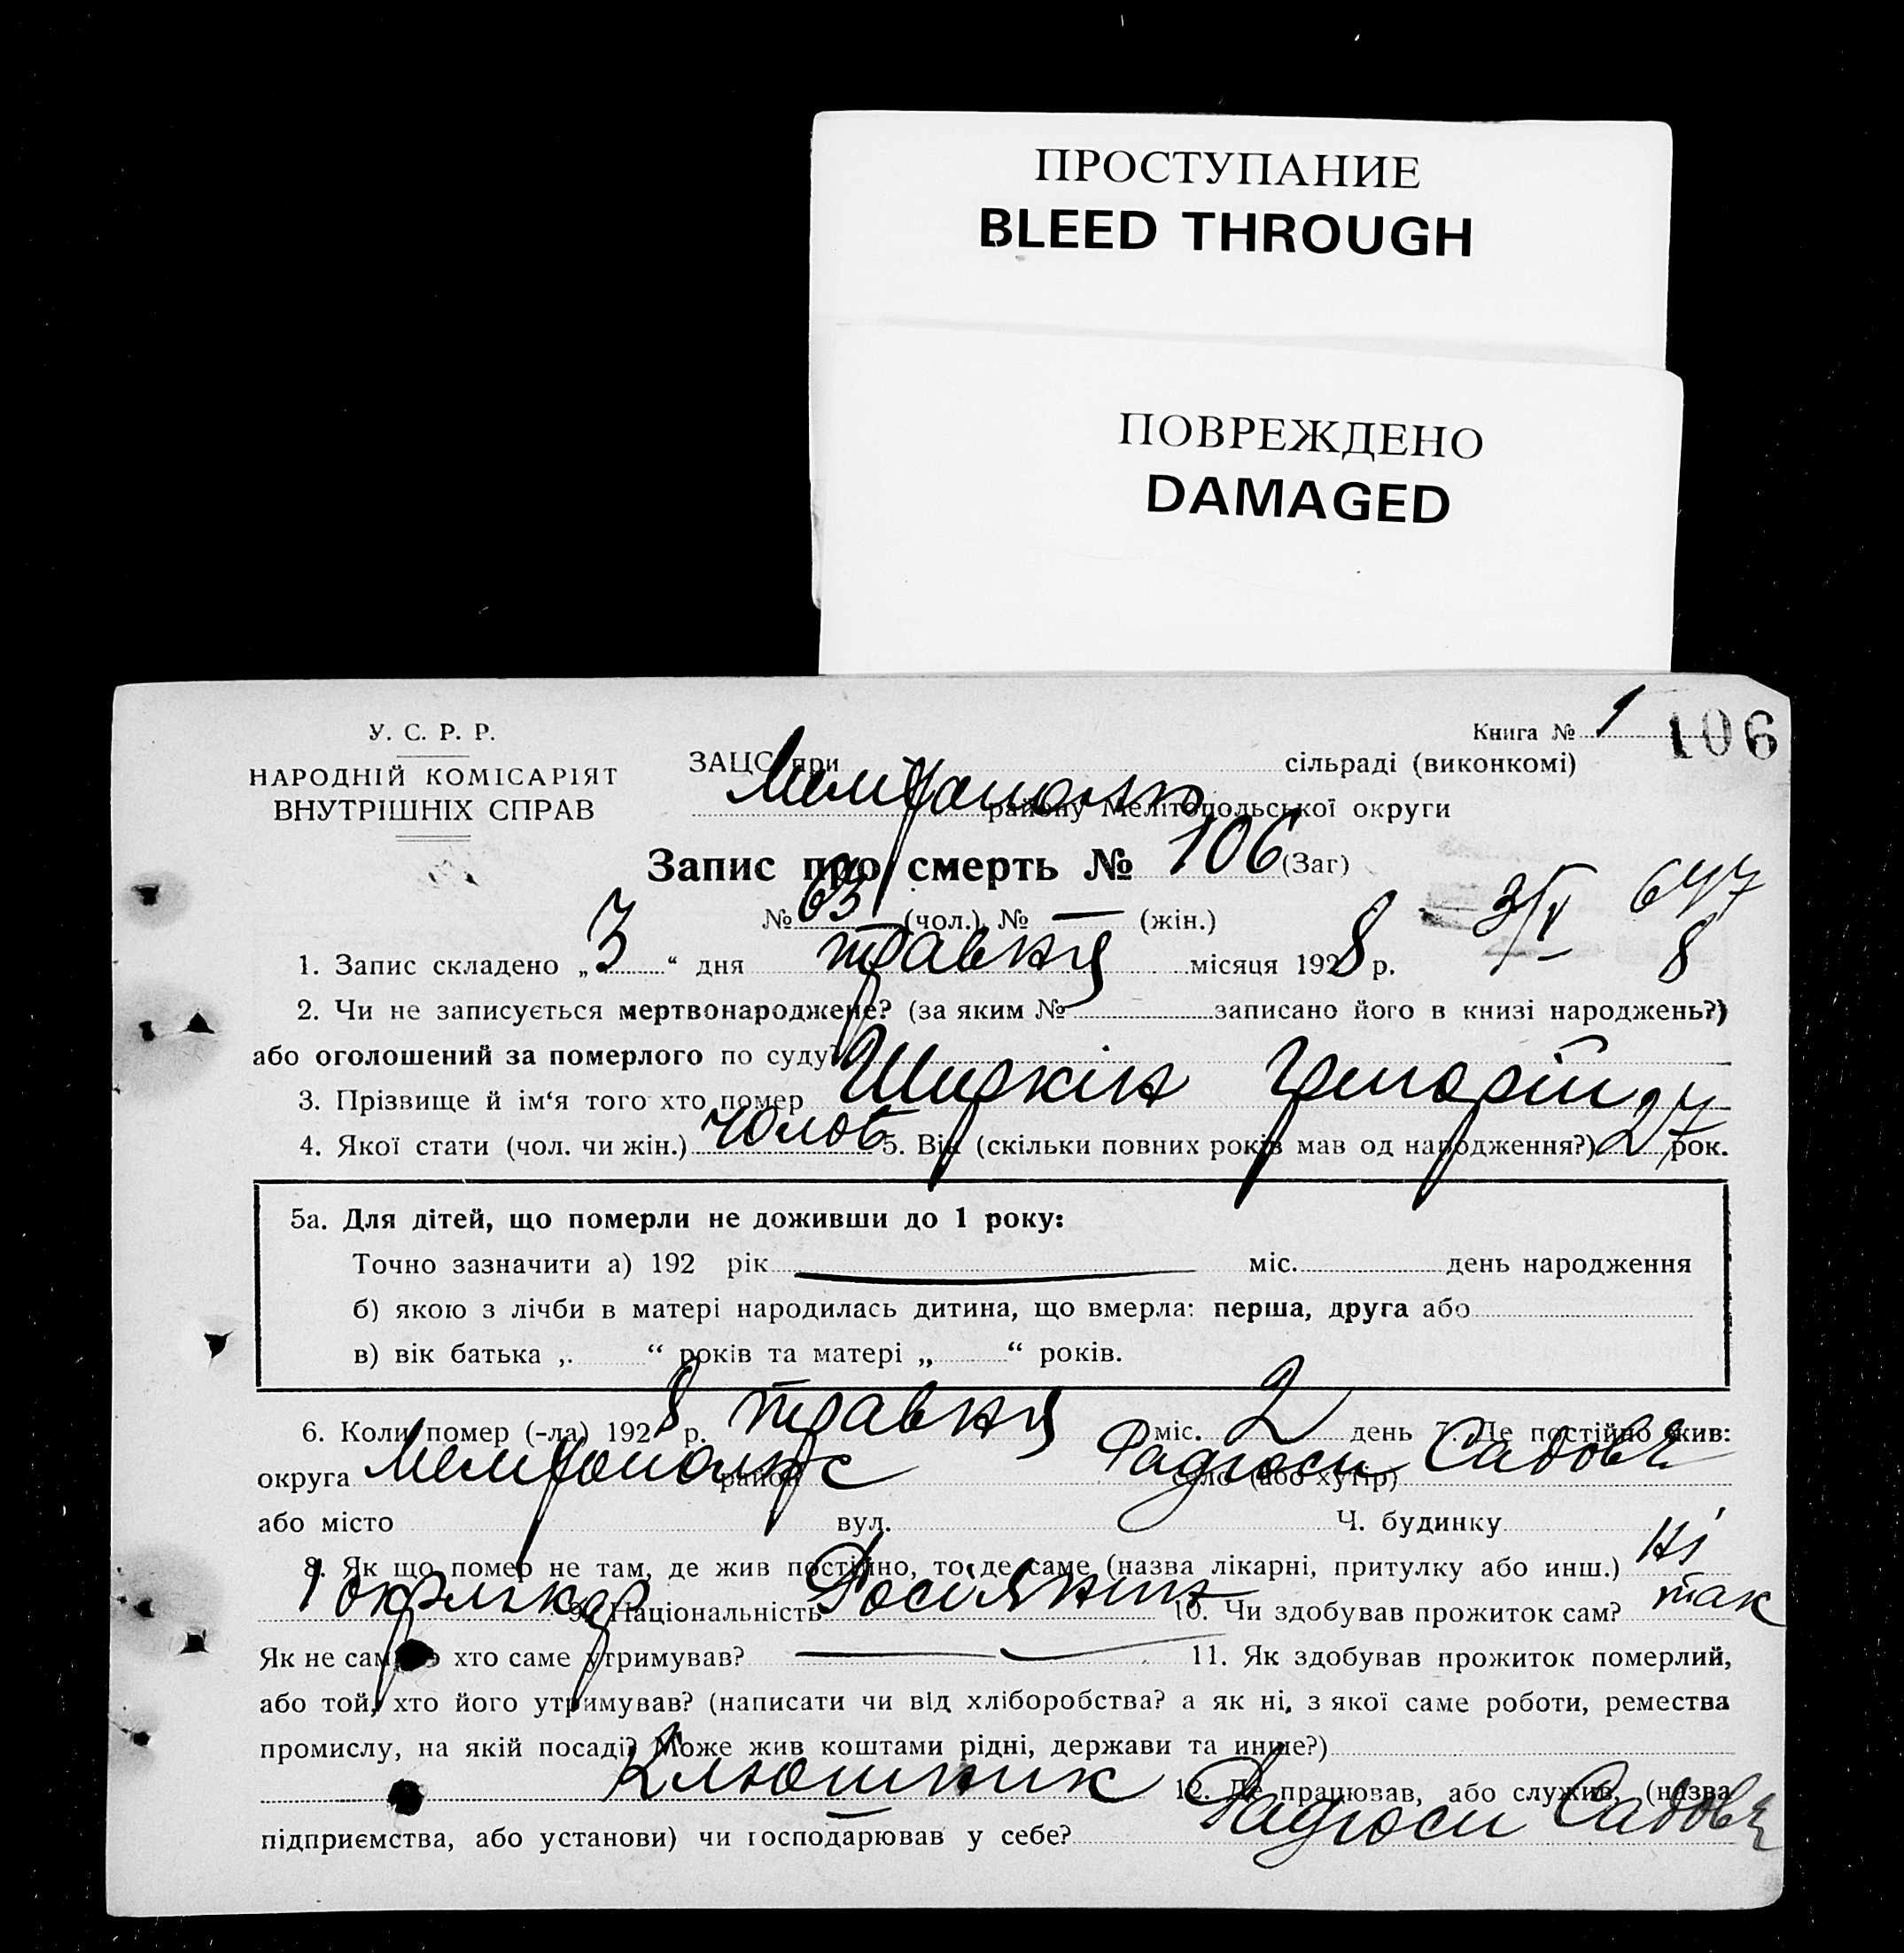 ПРОСТУПАНИЕ
BLEED THROUGH
ПОВРЕЖДЕНО
DAMAGED
У. С. Р. Р.
НАРОДНІЙ КОМІСАРІЯТ
ВНУТРІШНІХ СПРАВ
Книга № 1 106
ЗАЦС при сільраді (виконкомі)
району Мелітопольської округи
Запис про смерть № 106 (Заг)
№ 63 (чол.) № — (жін.)
3/V 647
8
1. Запис складено „3“ дня травня місяця 1928 р.
2. Чи не записується мертвонароджене? (за яким № записано його в книзі народжень?)
або оголошений за померлого по суду?
3. Прізвище й ім‘я того хто помер Ширкін Григорій
4. Якої стати (чол. чи жін.) чолов 5. Вік (скільки повних років мав од народження?) 27 рок.
5а. Для дітей, що померли не доживши до 1 року:
Точно зазначити а) 192 рік міс. день народження
б) якою з лічби в матері народилась дитина, що вмерла: перша, друга або
в) вік батька „ “ років та матері „ “ років.
6. Коли помер (-ла) 1928 р. травня міс. 2 день 7. Де постійно жив:
округа район село (або хутір) Садове
або місто вул. Ч. будинку
8. Як що помер не там, де жив постійно, то де саме (назва лікарні, притулку або инш.) ні
9. Національність 10. Чи здобував прожиток сам? так
Як не сам, то хто саме утримував? — 11. Як здобував прожиток померлий,
або той, хто його утримував? (написати чи від хліборобства? а як ні, з якої саме роботи, ремества
промислу, на якій посаді? Може жив коштами рідні, держави та инше?)
Клюшник 12. Де працював, або служив, (назва
підприємства, або установи) чи господарював у себе? Садове